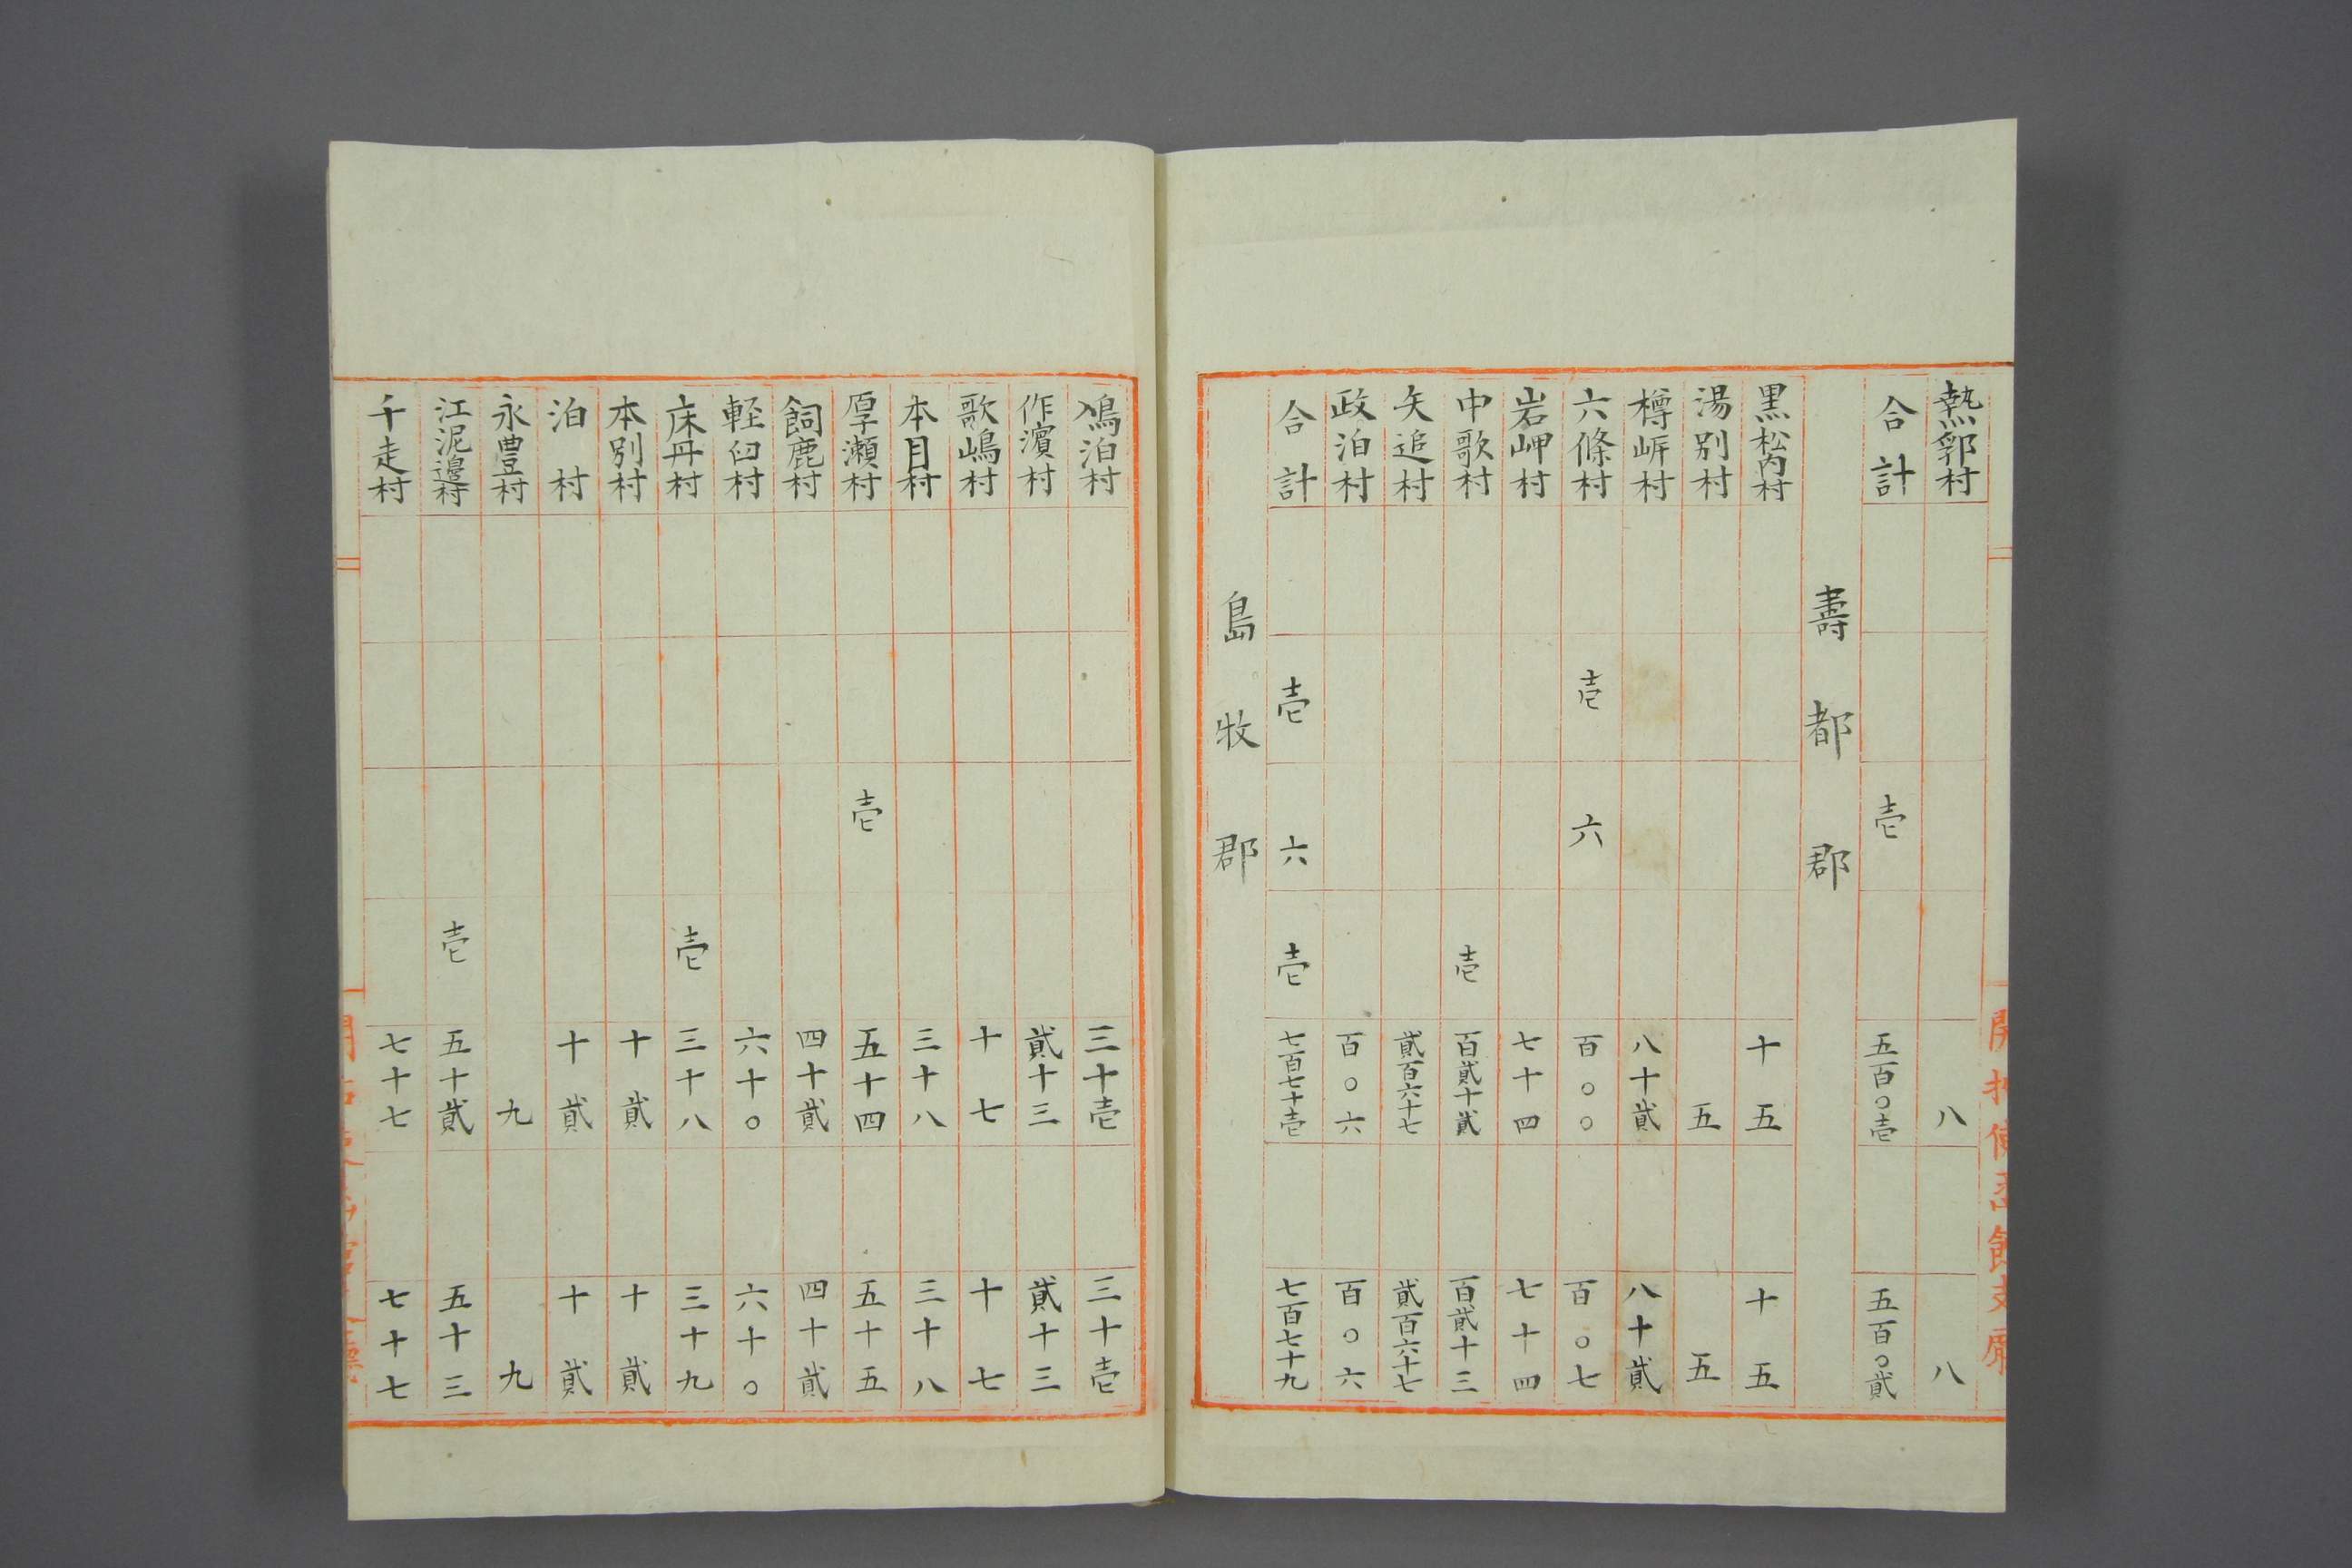 熱郛村 八 八
合計 壱 五百〇壱 五百〇貮
壽都郡
黒松内村 十五 十五
湯別村 五 五
樽岸村 八十貮 八十貮
六條村 壱 六 百〇〇 百〇七
岩岬村 七十四 七十四
中歌村 壱 百貮十貮 百貮十三
矢追村 貮百六十七 貮百六十七
政泊村 百〇六 百〇六
合計 壱 六 壱 七百七十壱 七百七十九
島牧郡
鳰泊村 三十壱 三十壱
作濵村 貮十三 貮十三
歌嶋村 十七 十七
本目村 三十八 三十八
厚瀬村 壱 五十四 五十五
飼鹿村 四十貮 四十貮
軽臼村 六十〇 六十〇
床丹村 壱 三十八 三十九
本別村 十貮 十貮
泊村 十貮 十貮
永豊村 九 九
江泥邉村 壱 五十貮 五十三
千走村 七十七 七十七